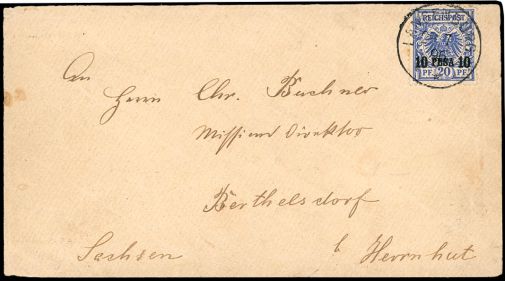 REICHSPOST
10 PESA 10
PF. 20 PF.
An
Herrn Chr. Buchner
Missions Direktor
Berthelsdorf
Sachsen b Herrnhut